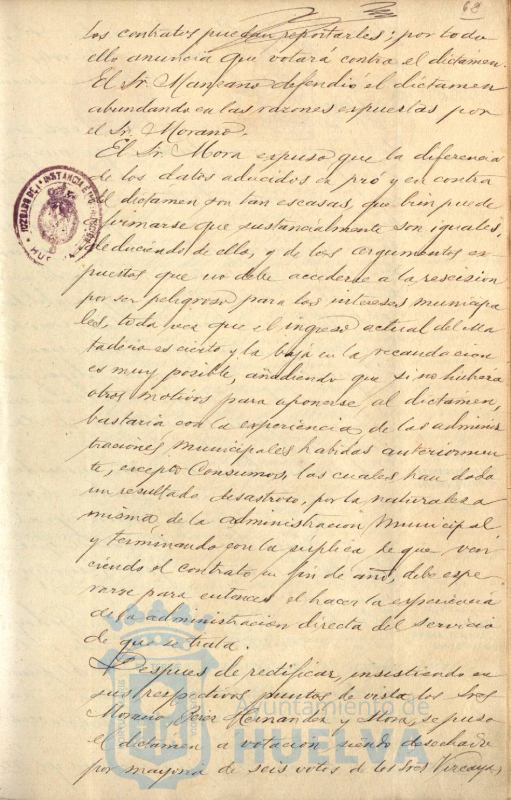 68
los contratos puedan reportarles; por todo
ello anuncia que votará contra el dictamen.
El Sr. Manzano defendió el dictamen
abundando en las razones expuestas por
el Sr. Morano.
El Sr. Mora expuso que la diferencia
de los datos aducidos en pró y en contra
del dictamen son tan escasas, que bien puede
afirmarse que sustancialmente son iguales,
deduciendo de ello, y de los argumentos ex-
puestos que no debe accederse a la rescision
por ser peligroso para los intereses municipa-
les, toda vez que el ingreso actual del Ma-
tadero es cierto y la baja en la recaudacion
es muy posible, añadiendo que si no hubiera
otros motivos para oponerse al dictamen,
bastaria con la experiencia de las adminis-
traciones municipales habidas anteriormen-
te, excepto Consumos, las cuales han dado
un resultado desastroso, por la naturaleza
misma de la administracion municipal
y terminando con la súplica de que ven-
ciendo el contrato en fin de año, debe espe-
rarse para entonces el hacer la experiencia
de la administracion directa del servicio
de que se trata.
Despues de rectificar, insistiendo en
sus respectivos puntos de vista los Sres
Morano, Perez Hernandez y Mora, se puso
el dictamen a votacion siendo desechado
por mayoria de seis votos de los Sres
Ayuntamiento de
HUELVA